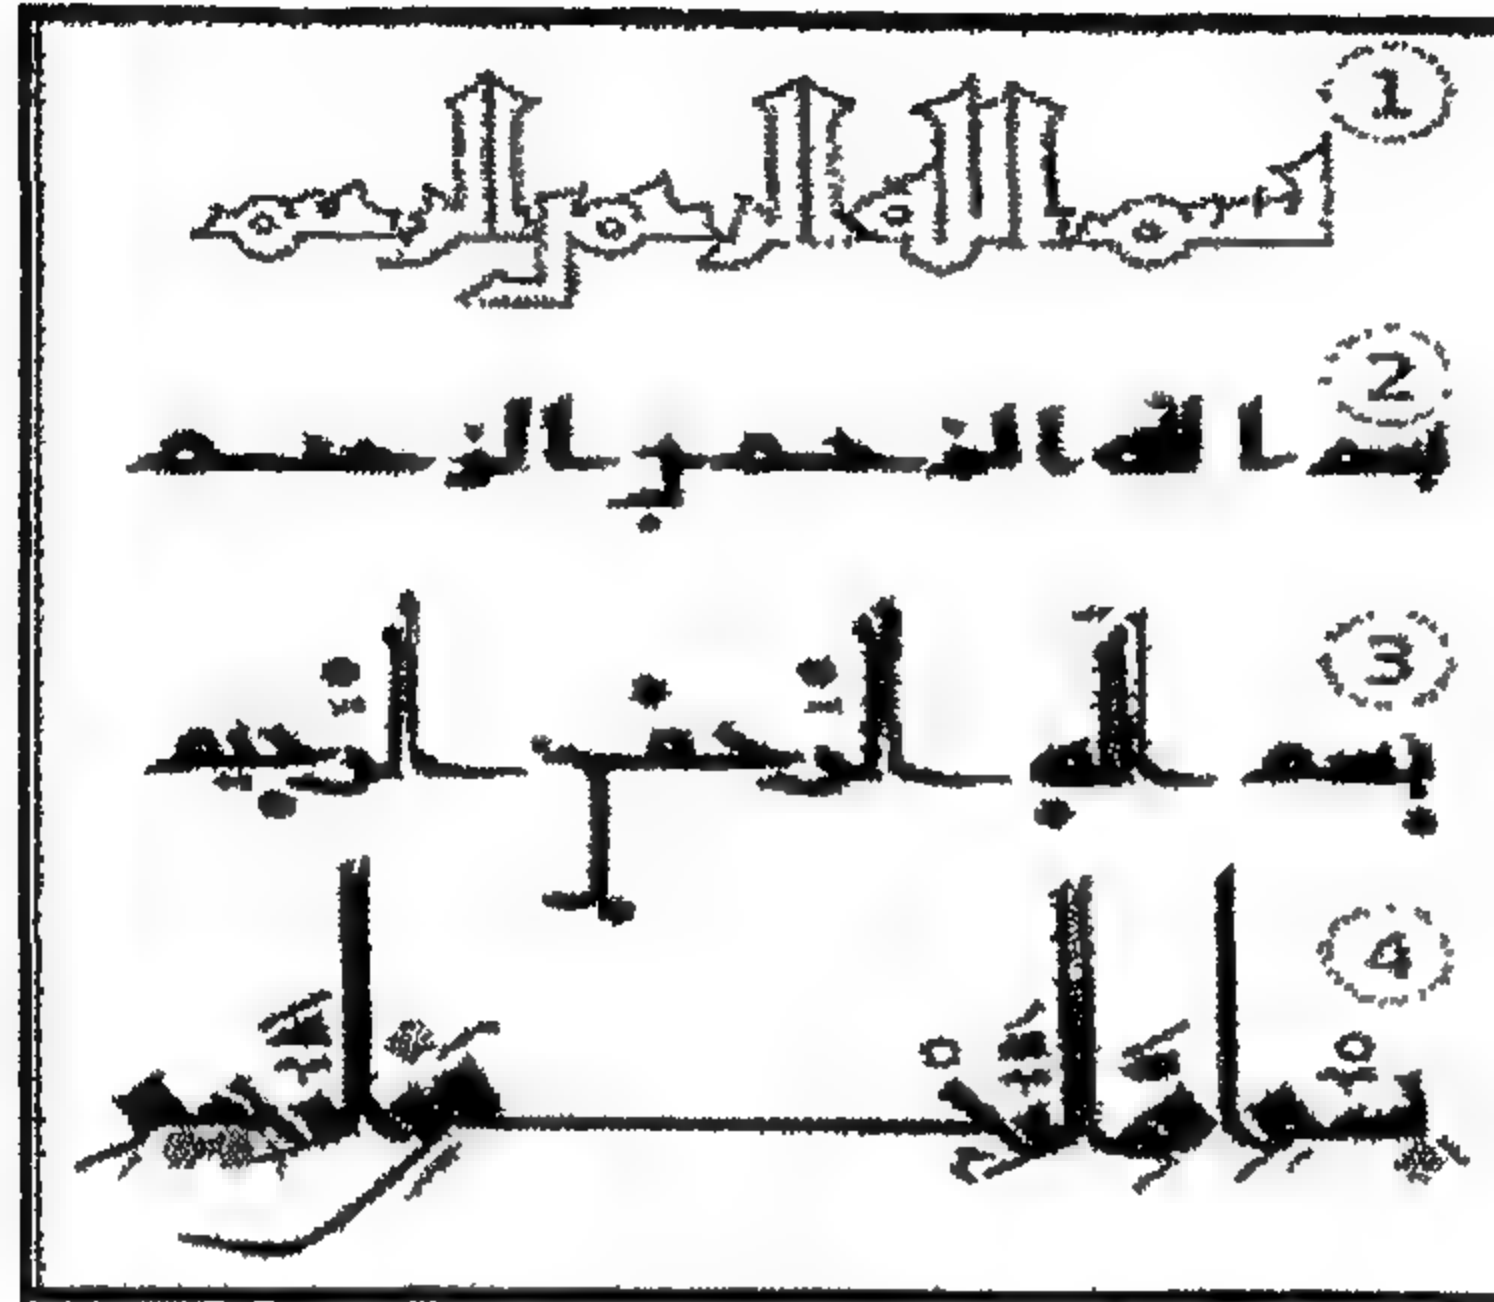 1
بسم الله الرحمن الرحيم
2
بسم الله الرحمن الرحيم
3
بسم الله الرحمن الرحيم
4
بسم الله الرحمن الرحيم